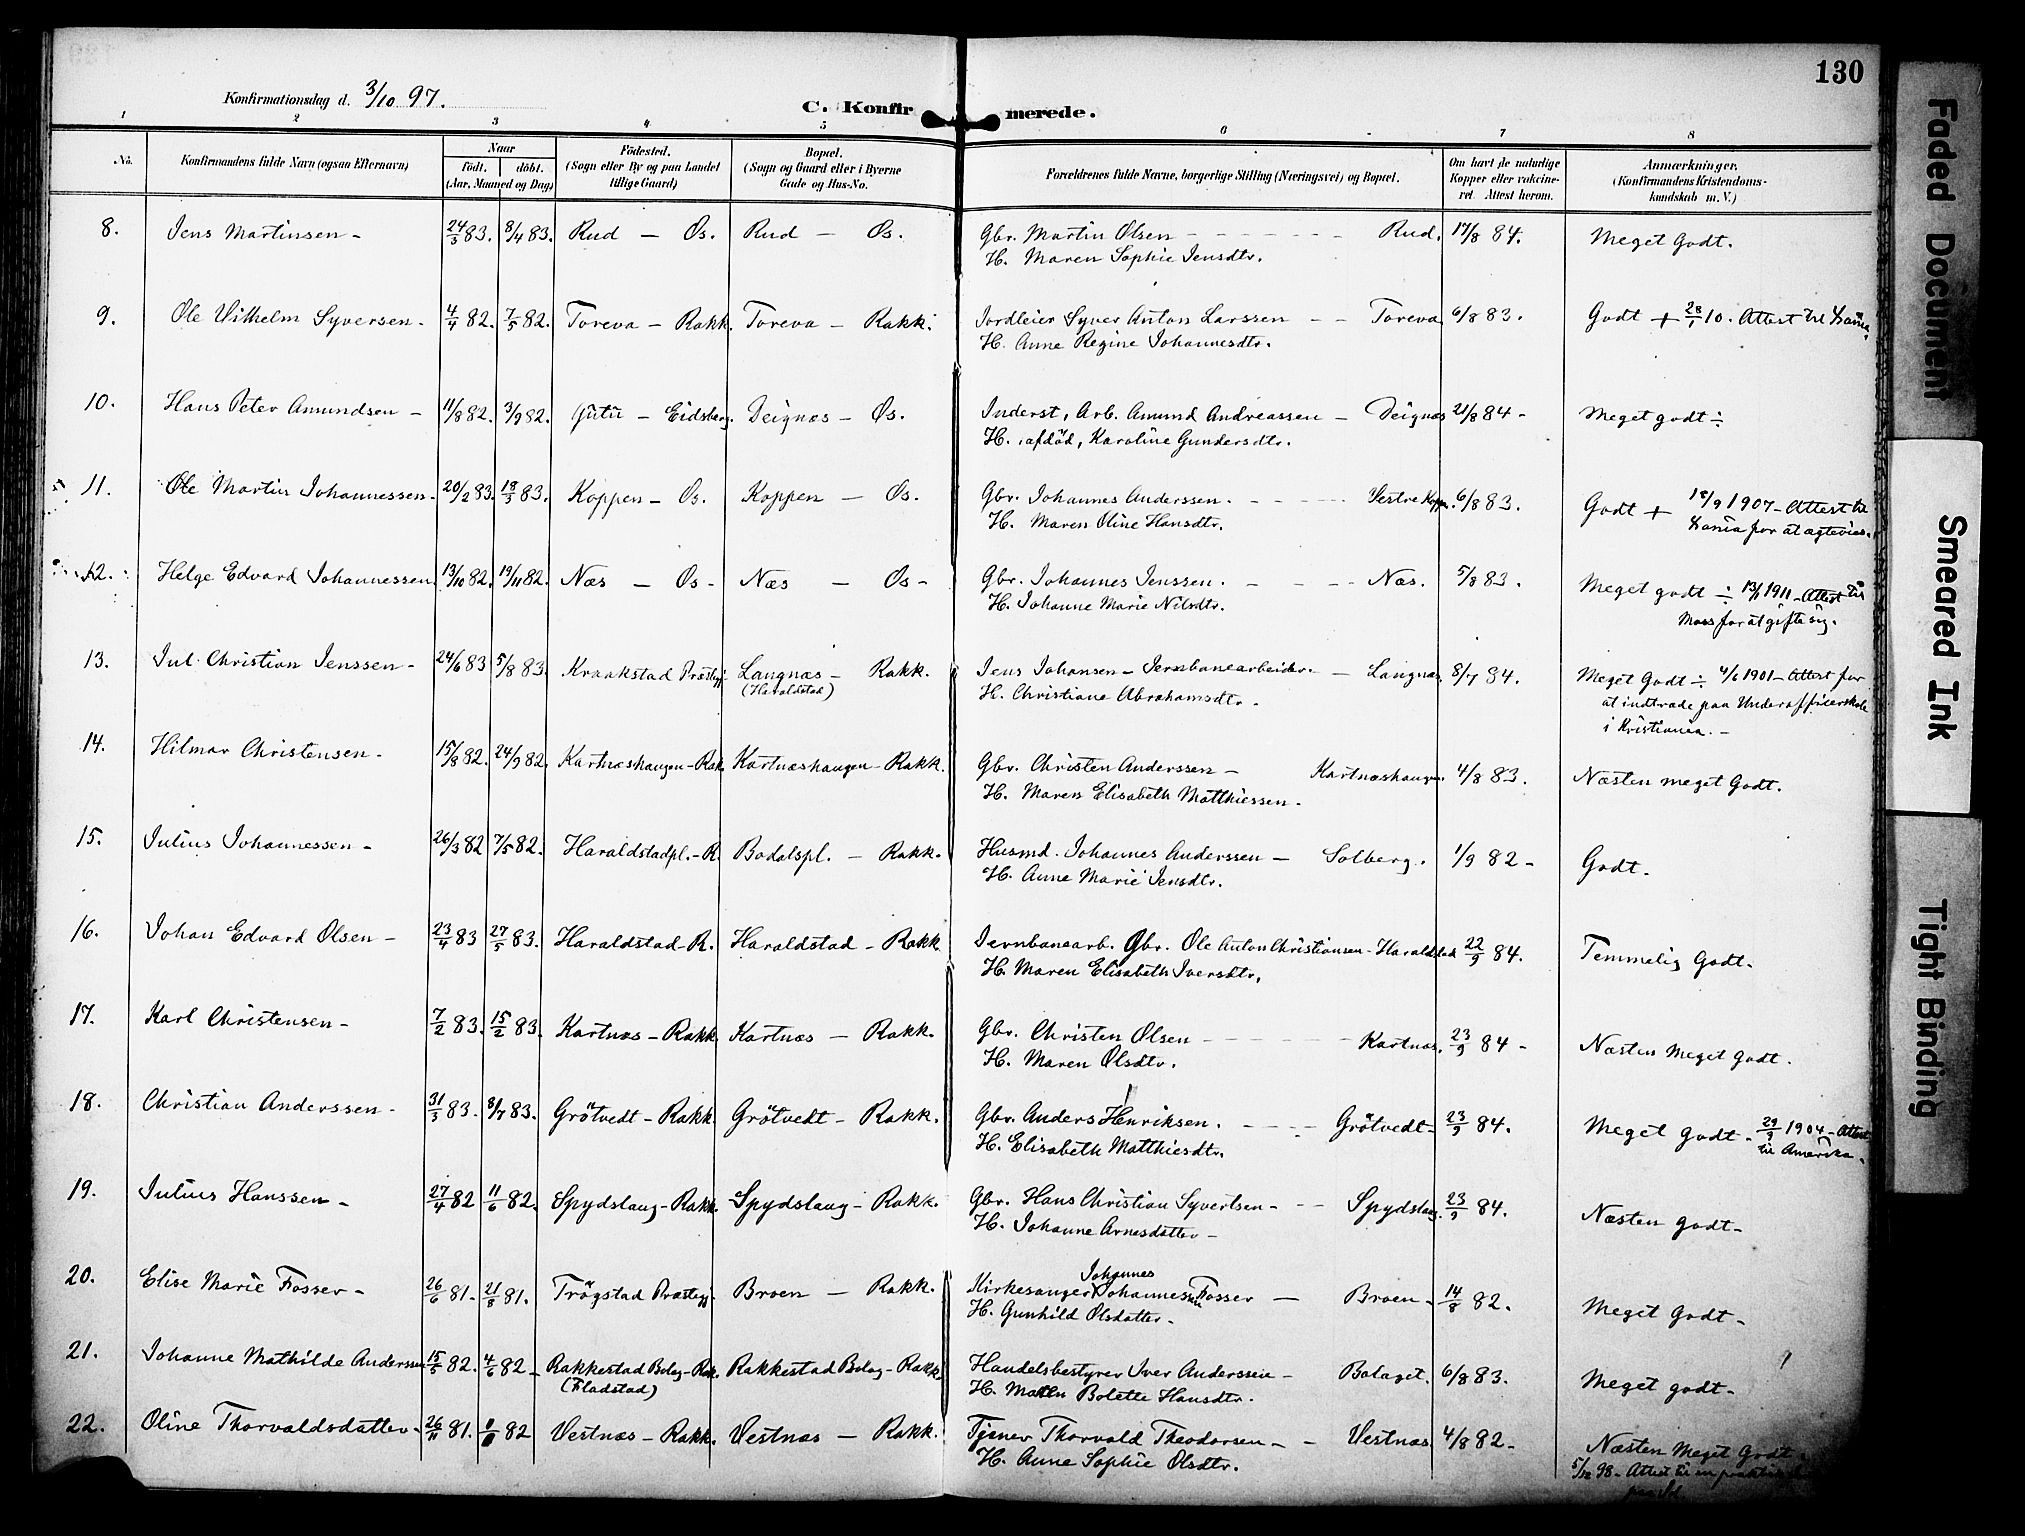 130
Konfirmationsdag d. 3/10 97.
C. Konfirmerede.
1 2 3 4 5 6 7 8
No. Konfirmandens fulde Navn (ogsaa Efternavn) Naar født. døbt. (Aar, Maaned og Dag) Födested. (Sogn eller By og paa Landet tillige Gaard) Bopæl. (Sogn og Gaard eller i Byerne Gade og Hus-No. Forældrenes fulde Navne, borgerlige Stilling (Næringsvei) og Bopæl. Om havt de naturlige Kopper eller vakcineret Attest herom. Anmærkninger. (Konfirmandens Kristendomskundskab m. V.)
8. Jens Martinsen - 24/3 83. 8/4 83. Rud - Øs. Rud - Øs. Gbr. Martin Olsen - Rud. 17/8 84. Meget Godt.
H. Maren Sophie Jensdtr.
9. Ole Vilhelm Syversen - 4/4 82. 7/5 82. Toreva - Rakk. Toreva - Rakk. Jordleier Syver Anton Larssen - - Toreva 6/8 83. Godt + 28/1 10. Attest til Xania.
H. Anne Regine Johannesdtr.
10. Hans Peter Amundsen - 11/8 82. 3/9 82. Gutu - Eidsberg. Deignæs - Øs. Inderst, Arb. Amund Andreassen - Deignæs 21/8 84 - Meget godt ÷
H. afdöd, Karoline Gundersdtr.
11. Ole Martin Johannessen - 20/2 83. 18/3 83. Koppen - Øs. Koppen - Øs. Gbr. Johannes Anderssen. - Vestre Kopp. 6/8 83. Godt + 18/9 1907 - Attest til
H. Maren Oline Hansdtr. Xania for at ægtevies.
12. Helge Edvard Johannessen 13/10 82. 19/11 82. Næs - Øs - Næs - Øs - Gbr. Johannes Jenssen. - Næs. 5/8 83. Meget godt ÷ 13/1 1911 - Attest til
H. Johanne Marie Nilsdtr. Moss for at gifte sig.
13. Jul. Christian Jenssen - 24/6 83 5/8 83. Kraakstad Præstegj. Langnæs - Rakk. Jens Johansen - Jernbanearbeider. - Langnæs. 8/7 84. Meget Godt ÷ 4/6 1901 - Attest for
(Haraldstad) H. Christiane Abrahamsdtr. at indtræde paa Underofficerskole
i Kristiania. -
14. Hilmar Christensen - 15/8 82. 24/9 82. Kartnæshaugen - Rak. Kartnæshaugen - Rakk. Gbr. Christen Anderssen - Kartnæshaugen. 4/8 83. Næsten meget Godt.
H. Maren Elisabeth Matthiessen.
15. Julius Johannessen - 26/3 82 7/5 82. Haraldstadpl. - R. Bodalspl. - Rakk. Husmd. Johannes Anderssen - Solberg. 1/9 82 - Godt.
H. Anne Marie Jensdtr.
16. Johan Edvard Olsen - 23/4 83 27/5 83. Haraldstad - R. Haraldstad - Rakk. Jernbanearb. Gbr. Ole Anton Christiansen - Haraldstad 22/9 84. Temmelig Godt.
H. Maren Elisabeth Iversdtr.
17. Karl Christensen - 7/2 83. 15/2 83. Kartnæs - Rakk. Kartnæs - Rakk. Gbr. Christen Olsen - Kartnæs. 23/9 84 - Næsten Meget godt.
H. Maren Olsdtr.
18. Christian Anderssen - 31/3 83. 8/7 83. Grötvedt - Rakk. Grötvedt - Rakk. Gbr. Anders Henriksen. - Grötvedt - 23/9 84. Meget Godt. 29/9 1904 - Attest
H. Elisabeth Matthiesdtr. til Amerika.
19. Julius Hanssen - 27/4 82 11/6 82. Spydslaug - Rakk. Spydslaug - Rakk. Gbr. Hans Christian Syvertsen - - Spydslaug. 23/9 84. Næsten Godt -
H. Johanne Arnesdatter -
20. Elise Marie Fosser - 26/6 81. 21/8 81. Trögstad Præstegj. Broen - Rakk. Kirkesanger Johannes Johannesen Fosser - Broen - 14/8 82. Meget Godt -
H. Gunhild Olsdatter.
21. Johanne Mathilde Anderssen 15/5 82. 4/6 82 - Rakkestad Bolag - Rak. Rakkestad Bolag - Rakk. Handelsbestyrer Iver Anderssen - Bolaget. 6/8 83. Meget godt -
(Fladstad) H. Bolette Hansdtr.
22. Oline Thorvaldsdatter - 26/11 81. 82 Vestnæs - Rakk. Vestnæs - Rakk. Tjener Thorvald Theodorsen - - Vestnæs 4/8 82 - Næsten Meget Godt -
H. Anne Sophie Olsdtr. 5/12 98 - Attest til
Faded Document
Smeared Ink
Tight Binding